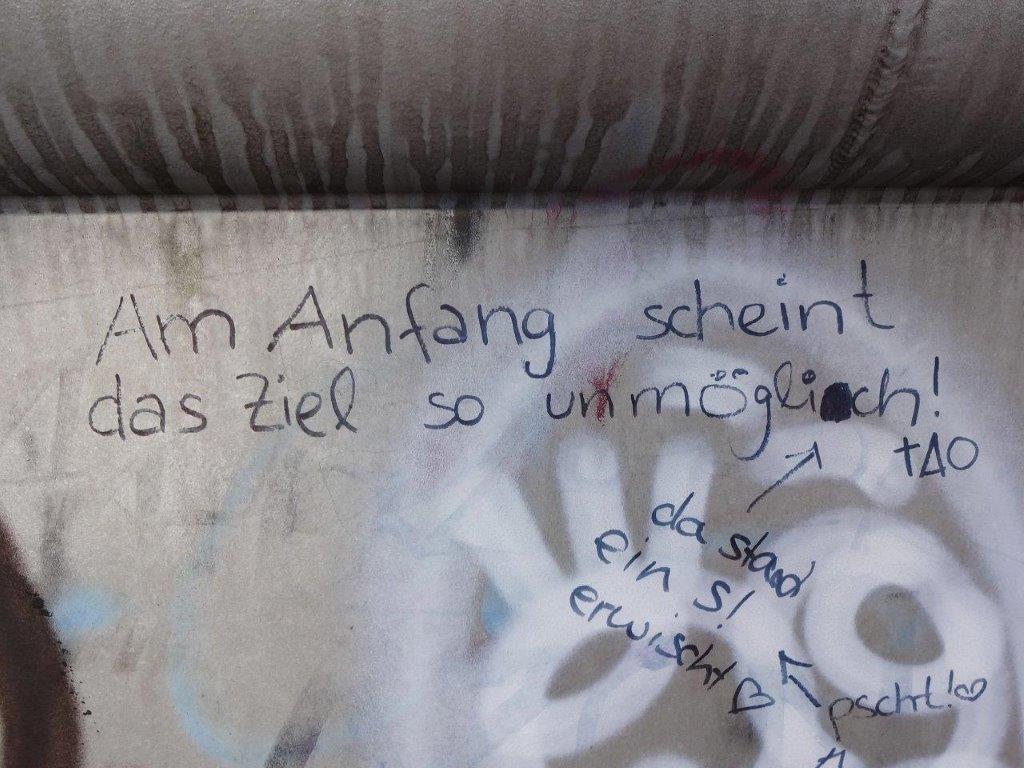 Am Anfang scheint
das Ziel so unmöglich!
tAO
da stand
ein s!
erwischt B
pscht!